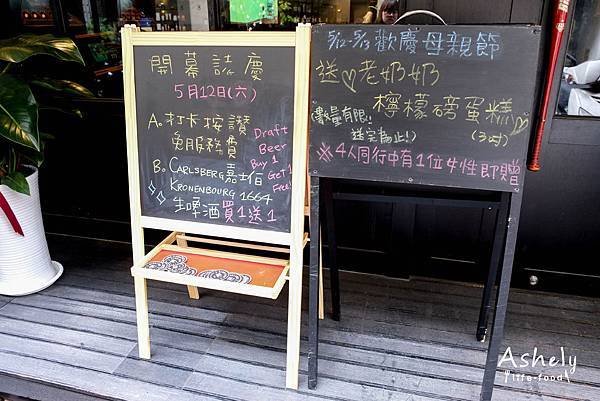 開幕誌慶
5月12日(六)
A. 打卡按讚
免服務費
Draft
Beer
Buy 1
Get 1
Free!
B. CARLSBERG 嘉士伯
KRONENBOURG 1664
生啤酒買1送1
5/12-5/13 歡慶母親節
送♡老奶奶
檸檬磅蛋糕
(3吋)
(數量有限!
送完為止!)
※4人同行中有1位女性即贈
Ashely
life-food